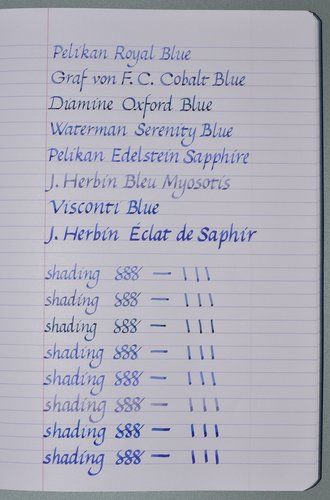 Pelikan Royal Blue
Graf von F. C. Cobalt Blue
Diamine Oxford Blue
Waterman Serenity Blue
Pelikan Edelstein Sapphire
J. Herbin Bleu Myosotis
Visconti Blue
J. Herbin Éclat de Saphir
shading 888 — | | |
shading 888 — | | |
shading 888 — | | |
shading 888 — | | |
shading 888 — | | |
shading 888 — | | |
shading 888 — | | |
shading 888 — | | |